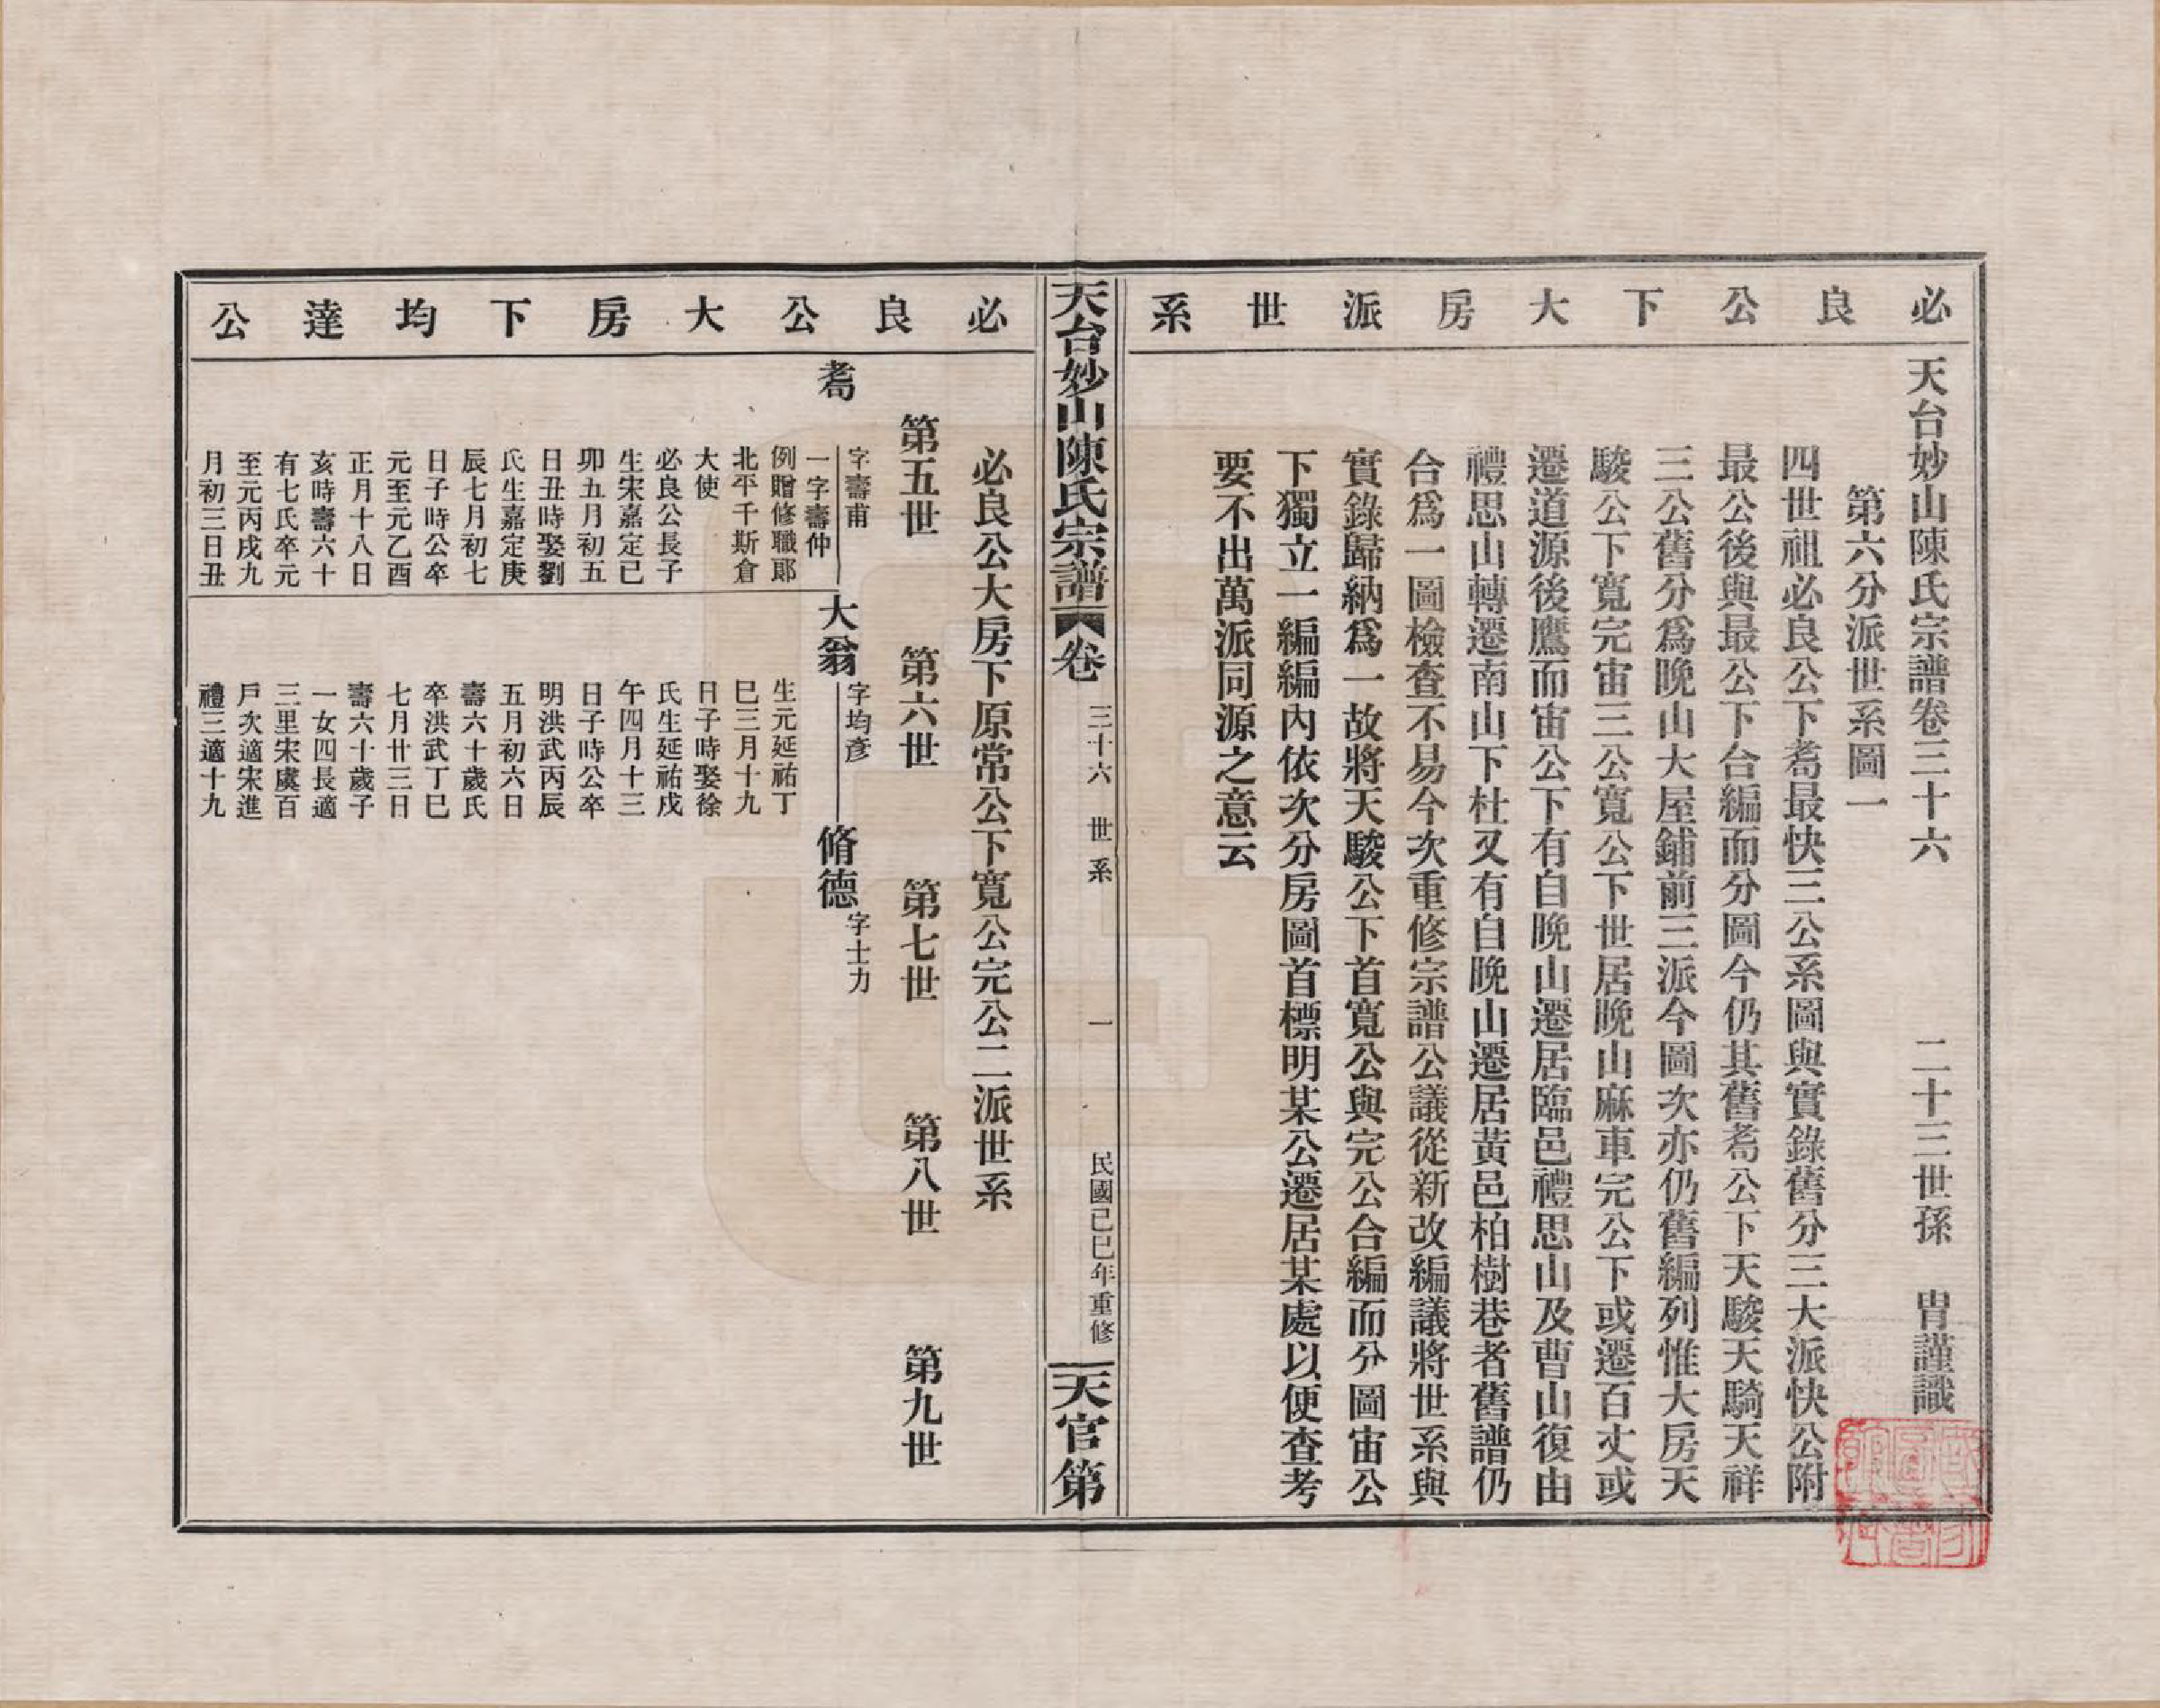 必良公下大房派世系
天台妙山陳氏宗譜卷三十六　二十三世孫　冑謹識
第六分派世系圖一
四世祖必良公下耇最快三公系圖與實錄舊分三大派快公附
最公後與最公下台編而分圖今仍其舊耇公下天駿天騎天祥
三公舊分爲晚山大屋鋪前三派今圖次亦仍舊編列惟大房天
駿公下寬完宙三公寬公下世居晚山麻車完公下或遷百丈或
遷道源後鷹而宙公下有自晚山遷居臨邑禮思山及曹山復由
禮思山轉遷南山下杜又有自晚山遷居黃邑柏樹巷者舊譜仍
合爲一圖檢查不易今次重修宗譜公議從新改編議將世系與
實錄歸納爲一故將天駿公下首寬公與完公合編而分圖宙公
下獨立一編編內依次分房圖首標明某公遷居某處以便查考
要不出萬派同源之意云
天台妙山陳氏宗譜
卷
三十六　世系
一
民國己巳年重修
天官第
必良公大房下均達公
必良公大房下原常公下寬公完公二派世系
第五世　第六世　第七世　第八世　第九世
耇
字壽甫
一字壽仲
例贈修職郎
北平千斯倉
大使
必良公長子
生宋嘉定己
卯五月初五
日丑時娶劉
氏生嘉定庚
辰七月初七
日子時公卒
元至元乙酉
正月十八日
亥時壽六十
有七氏卒元
至元丙戌九
月初三日丑
大翁
字均彥
生元延祐丁
巳三月十九
日子時娶徐
氏生延祐戊
午四月十三
日子時公卒
明洪武丙辰
五月初六日
壽六十歲氏
卒洪武丁巳
七月廿三日
壽六十歲子
一女四長適
三里宋處百
戶次適宋進
禮三適十九
脩德
字士力